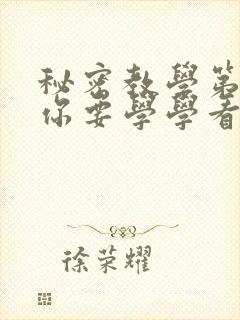 秘密教學第
你要學學看
徐荣耀